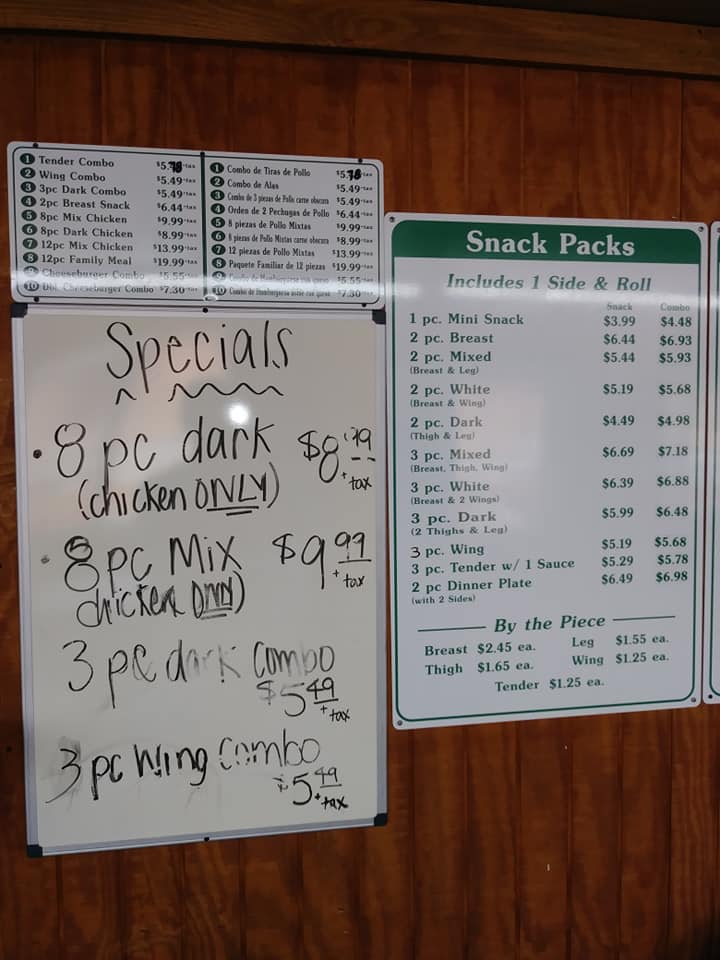 1 Tender Combo $5.78+tax
2 Wing Combo $5.49+tax
3 3pc Dark Combo $5.49+tax
4 2pc Breast Snack $6.44+tax
5 8pc Mix Chicken $9.99+tax
6 8pc Dark Chicken $8.99+tax
7 12pc Mix Chicken $13.99+tax
8 12pc Family Meal $19.99+tax
9 Cheeseburger Combo $5.55+tax
10 Dbl. Cheeseburger Combo $7.30+tax
1 Combo de Tiras de Pollo $5.78+tax
2 Combo de Alas $5.49+tax
3 Combo de 3 piezas de Pollo carne obscura $5.49+tax
4 Orden de 2 Pechugas de Pollo $6.44+tax
5 8 piezas de Pollo Mixtas $9.99+tax
6 8 piezas de Pollo Mixtas carne obscura $8.99+tax
7 12 piezas de Pollo Mixtas $13.99+tax
8 Paquete Familiar de 12 piezas $19.99+tax
9 Combo de Hamburguesa con queso $5.55+tax
10 Combo de Hamburguesa doble con queso $7.30+tax
Specials
8 pc dark $8.79
(chicken ONLY) + tax
8 pc Mix $9.99
chicken ONLY) + tax
3 pc dark combo
$5.49
+ tax
3 pc Wing combo
$5.49
+ tax
Snack Packs
Includes 1 Side & Roll
Snack Combo
1 pc. Mini Snack $3.99 $4.48
2 pc. Breast $6.44 $6.93
2 pc. Mixed $5.44 $5.93
(Breast & Leg)
2 pc. White $5.19 $5.68
(Breast & Wing)
2 pc. Dark $4.49 $4.98
(Thigh & Leg)
3 pc. Mixed $6.69 $7.18
(Breast, Thigh, Wing)
3 pc. White $6.39 $6.88
(Breast & 2 Wings)
3 pc. Dark $5.99 $6.48
(2 Thighs & Leg)
3 pc. Wing $5.19 $5.68
3 pc. Tender w/ 1 Sauce $5.29 $5.78
2 pc Dinner Plate $6.49 $6.98
(with 2 Sides)
By the Piece
Breast $2.45 ea. Leg $1.55 ea.
Thigh $1.65 ea. Wing $1.25 ea.
Tender $1.25 ea.